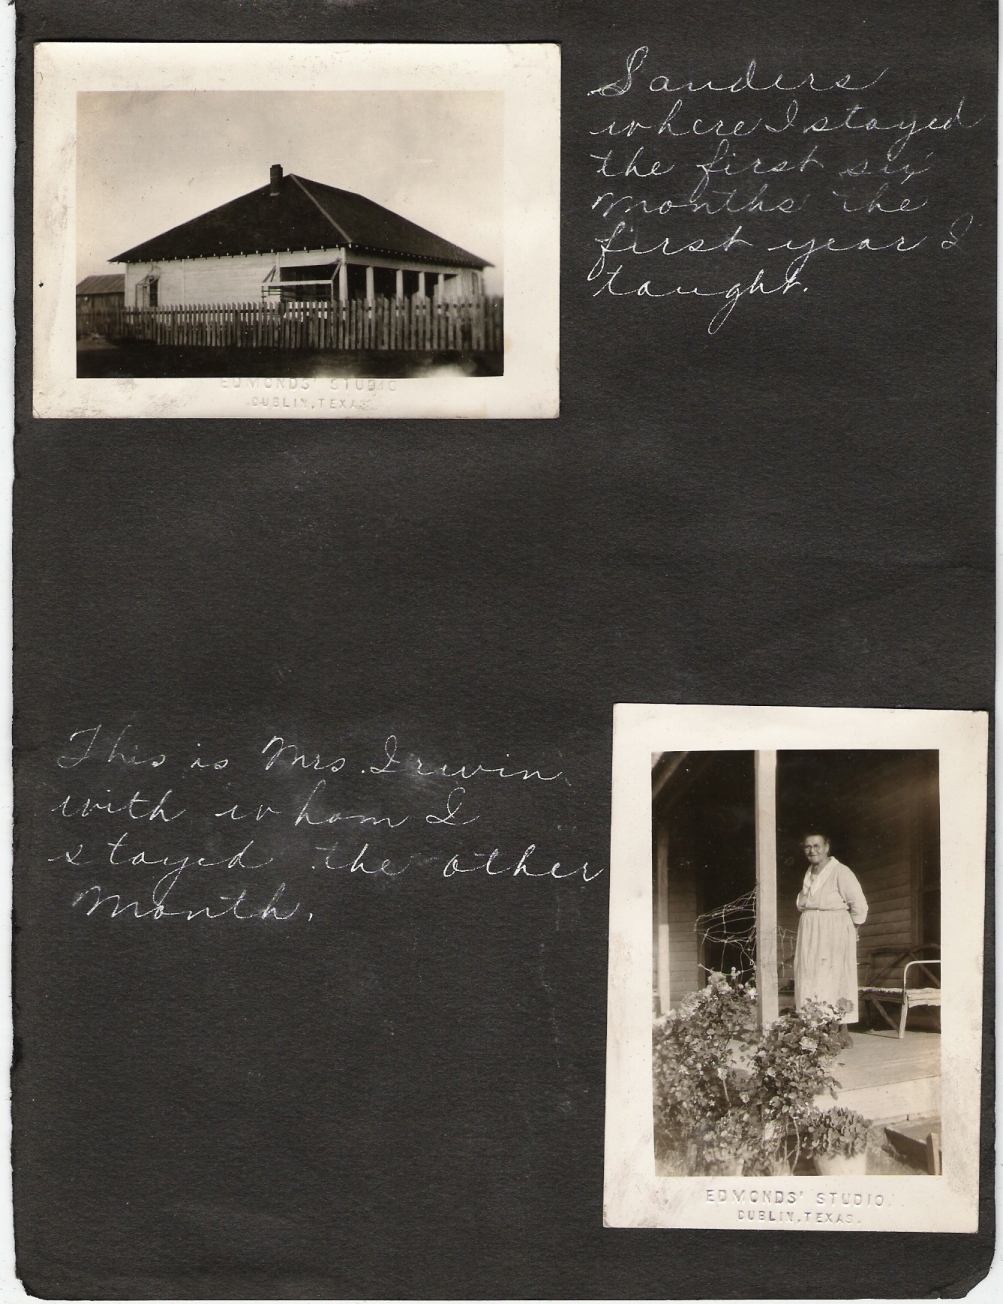 Sanders
where I stayed
the first six
months the
first year I
taught.
EDMONDS' STUDIO
DUBLIN, TEXAS.
This is Mrs. Irwin
with whom I
stayed the other
month.
EDMONDS' STUDIO.
DUBLIN, TEXAS.